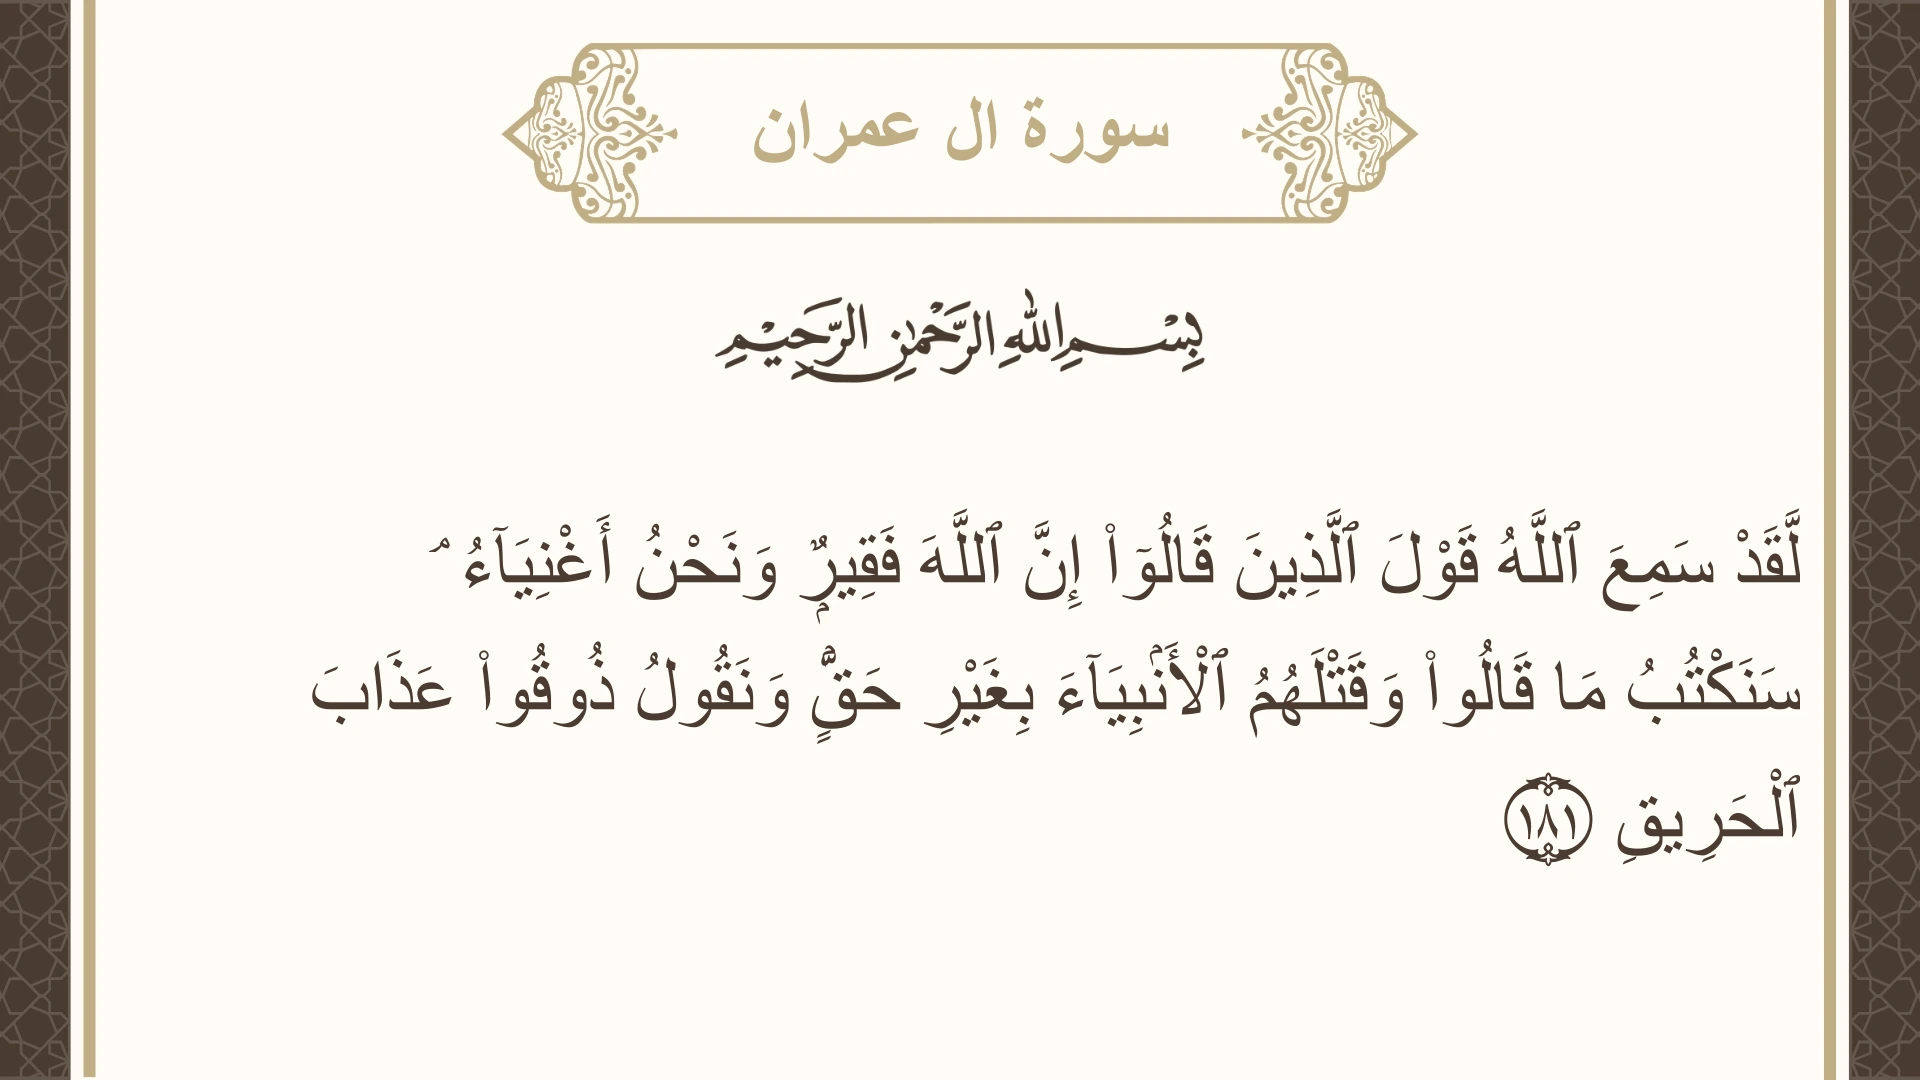 سورة ال عمران
بِسْمِ اللهِ الرَّحْمٰنِ الرَّحِيْمِ
لَّقَدْ سَمِعَ ٱللَّهُ قَوْلَ ٱلَّذِينَ قَالُوٓا۟ إِنَّ ٱللَّهَ فَقِيرٌۭ وَنَحْنُ أَغْنِيَآءُ ۘ
سَنَكْتُبُ مَا قَالُوا۟ وَقَتْلَهُمُ ٱلْأَنۢبِيَآءَ بِغَيْرِ حَقٍّۢ وَنَقُولُ ذُوقُوا۟ عَذَابَ
ٱلْحَرِيقِ ١٨١